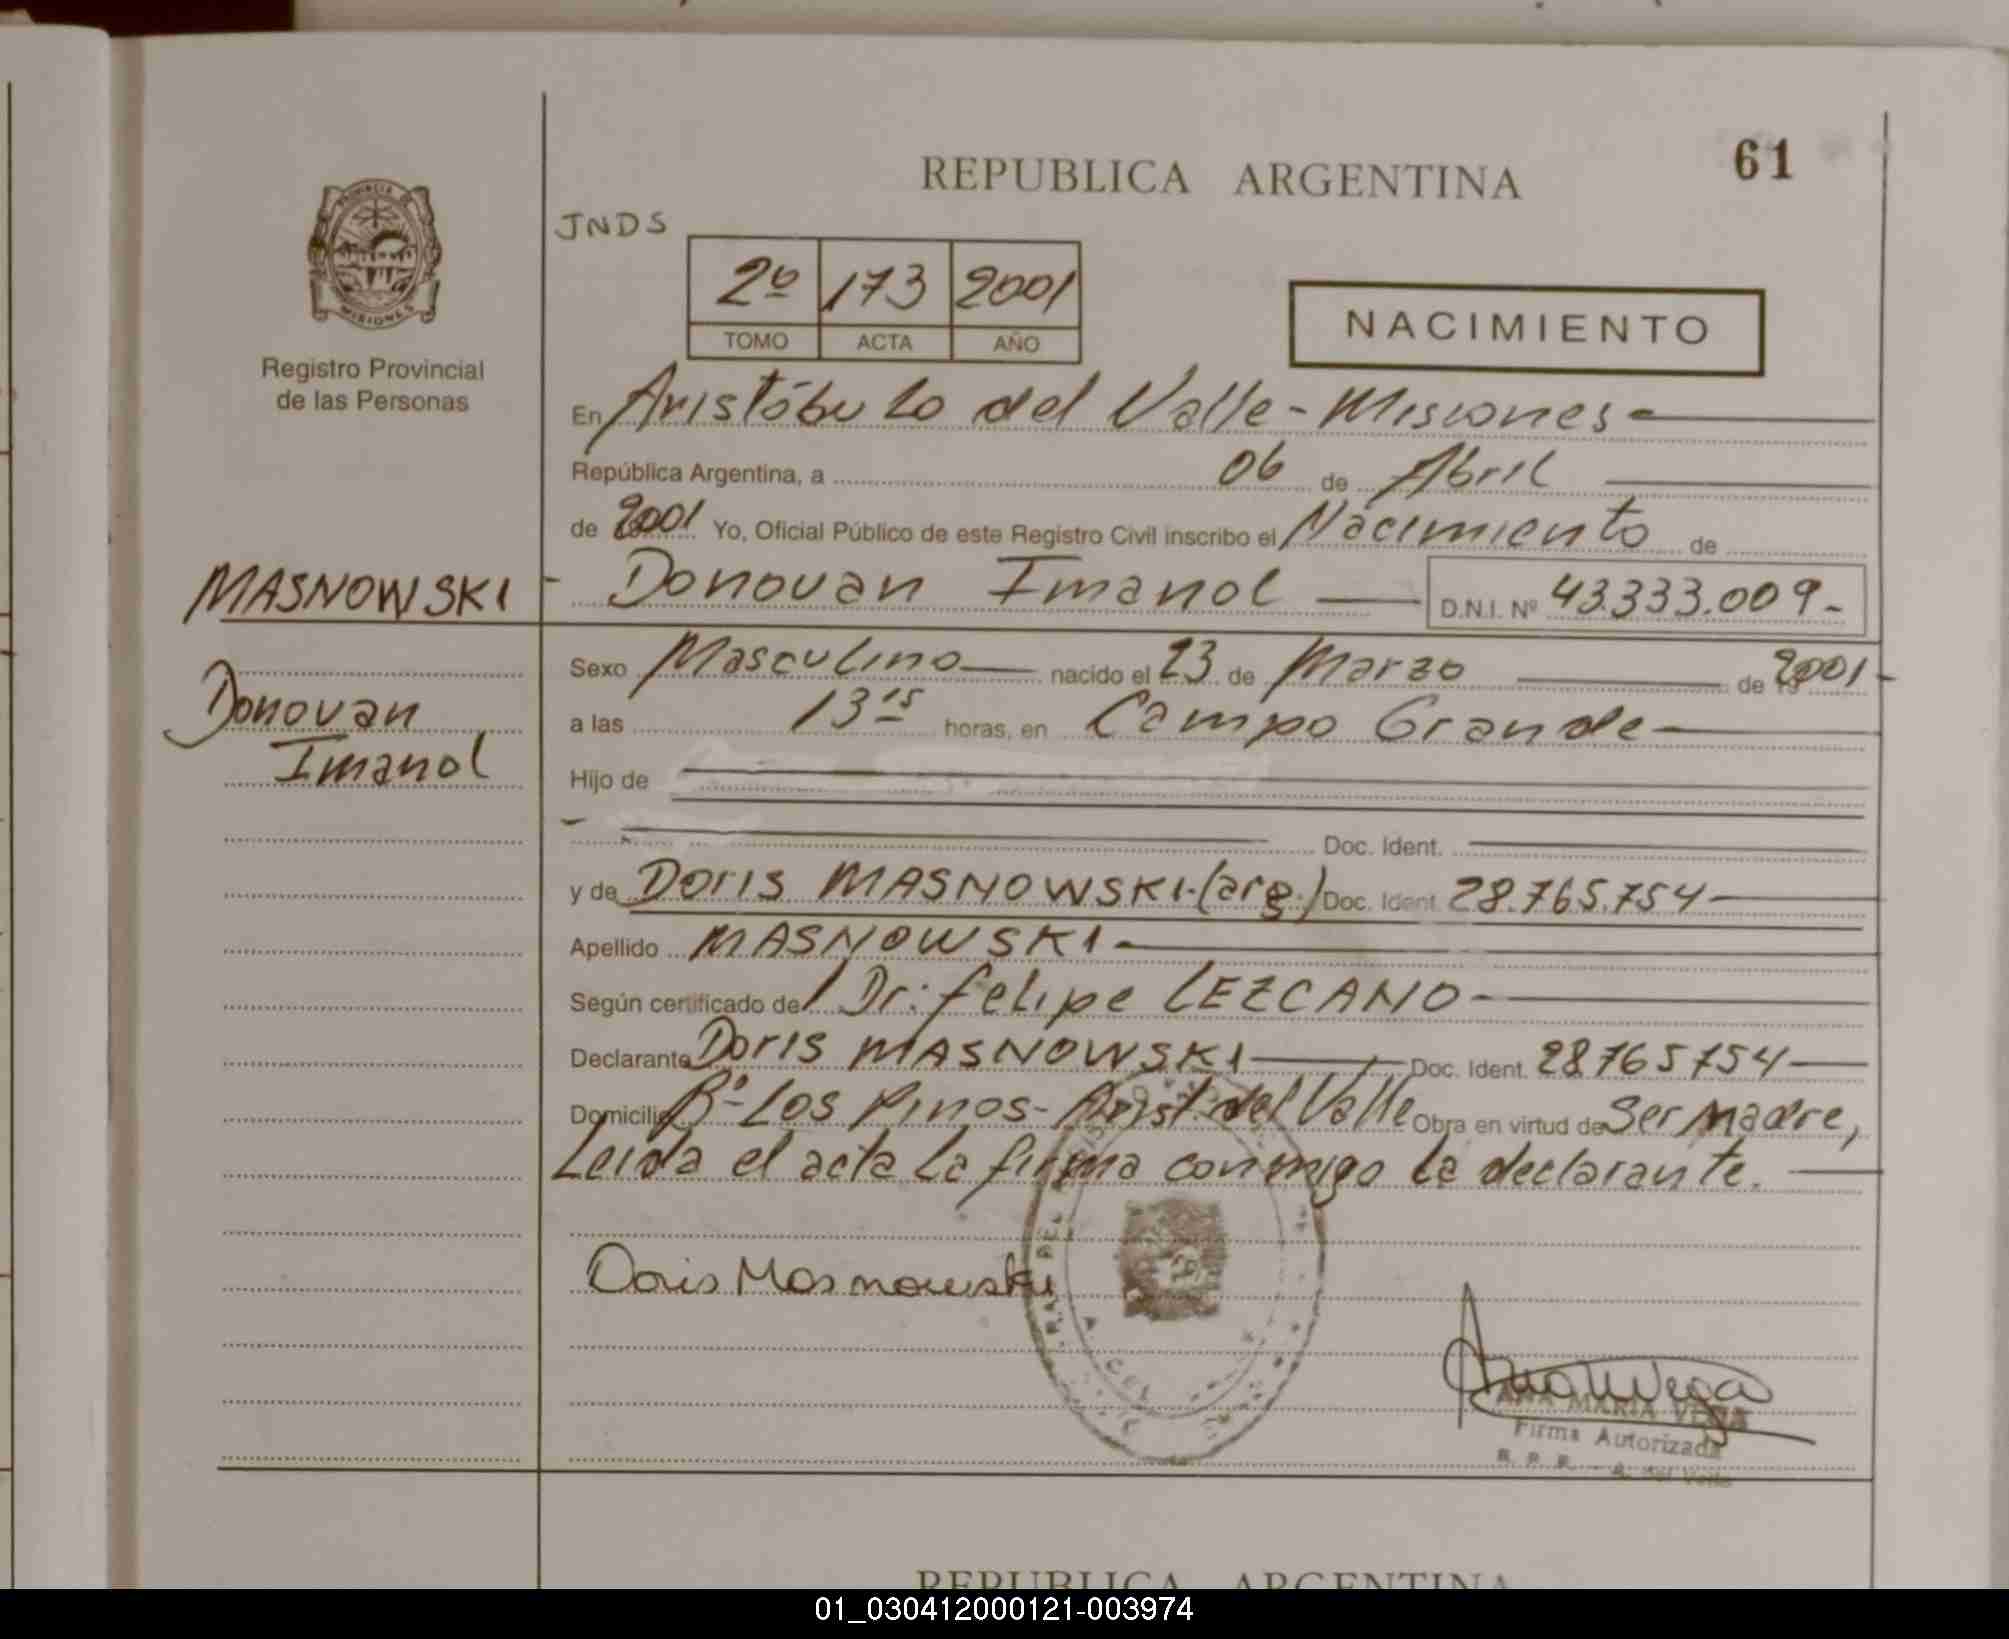 61
REPUBLICA ARGENTINA
PROVINCIA
MISIONES
Registro Provincial
de las Personas
JNDS
2º 173 2001
TOMO ACTA AÑO
NACIMIENTO
En Aristóbulo del Valle - Misiones -
República Argentina, a 06 de Abril
de 2001 Yo, Oficial Público de este Registro Civil inscribo el Nacimiento de
MASNOWSKI - Donovan Imanol D.N.I. Nº 43.333.009.-
Sexo Masculino nacido el 23 de Marzo de 2001-
Donovan
Imanol
a las 13 15 horas, en Campo Grande
Hijo de
Doc. Ident.
y de Doris MASNOWSKI.(arg.) Doc. Ident. 28.765.754
Apellido MASNOWSKI
Según certificado de Dr: Felipe LEZCANO
Declarante Doris MASNOWSKI Doc. Ident. 28765754
Domicilio Bº Los Pinos - Arist. del Valle Obra en virtud de Ser Madre,
Leida el acta la firma conmigo la declarante.
Doris Masnowski
ANA MARIA VEGA
Firma Autorizada
R. P. P. - A. del Valle
REPUBLICA ARGENTINA
01_030412000121-003974